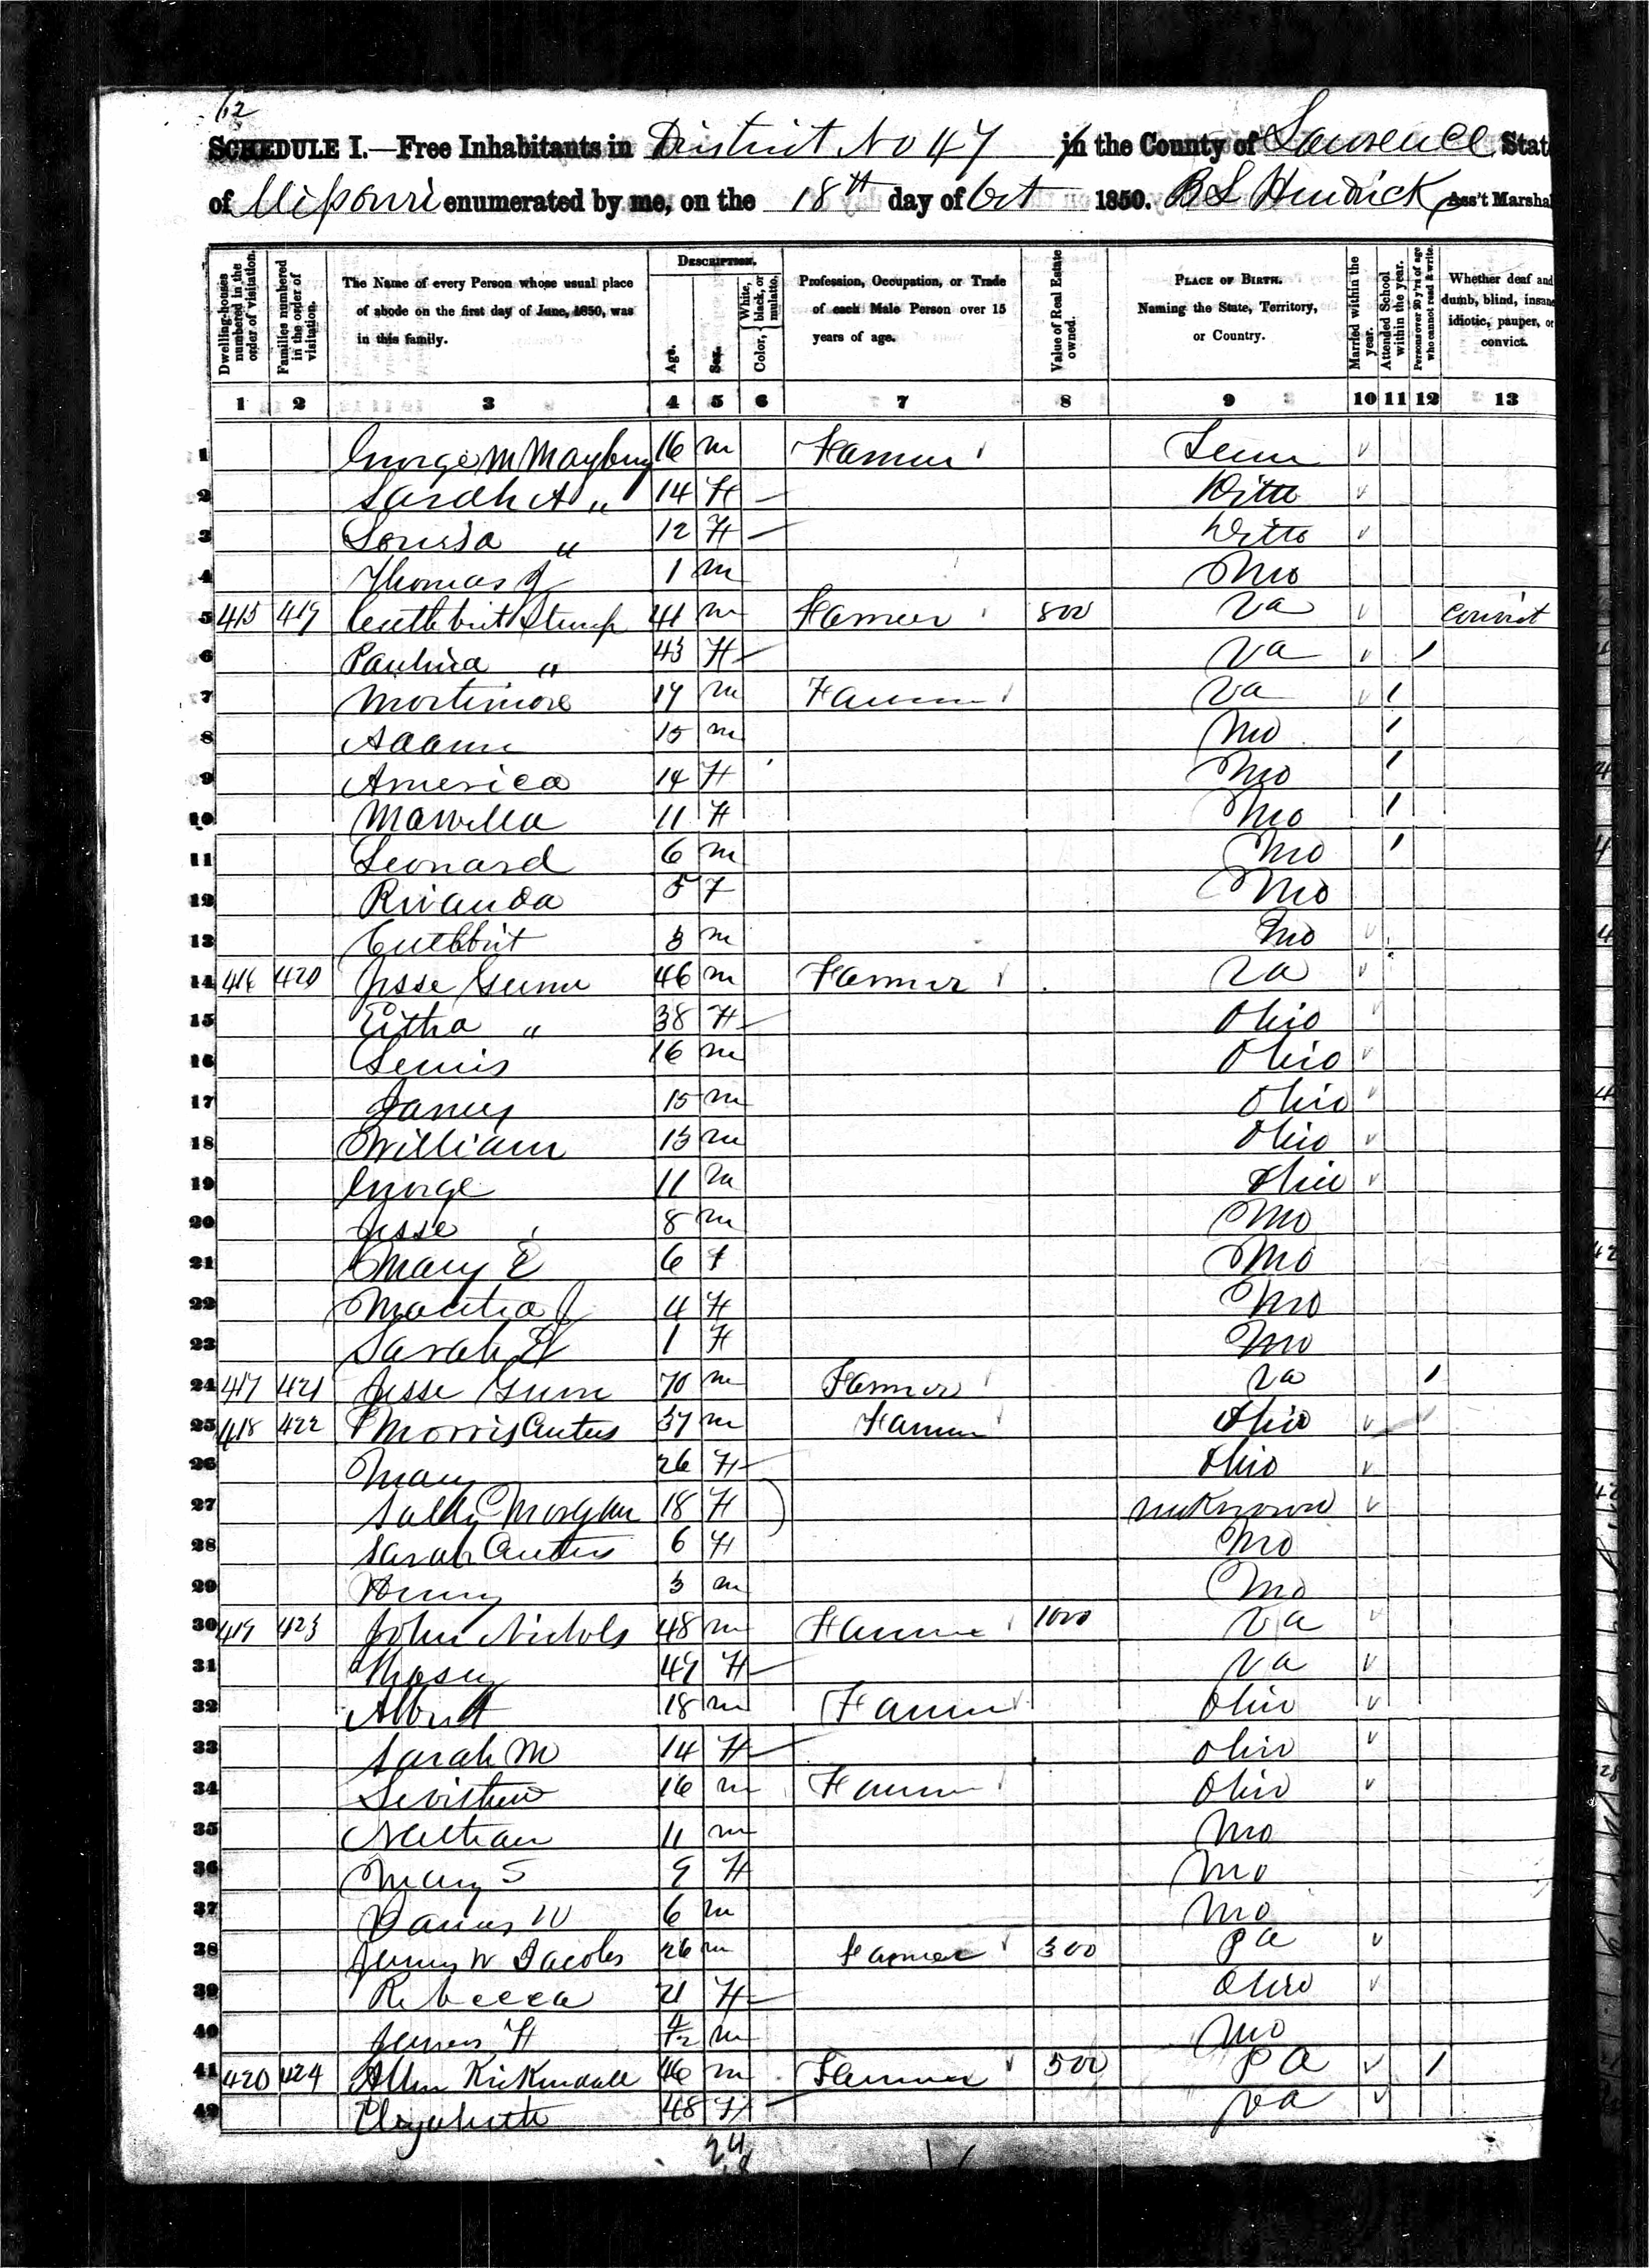 62
SCHEDULE I.—Free Inhabitants in District No 47 in the County of Lawrence State
of Missouri enumerated by me, on the 18th day of Oct 1850. B L Hendrick Ass't Marshal
Dwelling-houses numbered in the order of visitation. Families numbered in the order of visitation. The Name of every Person whose usual place of abode on the first day of June, 1850, was in this family. Description. Age. Sex. Color, White, black, or mulatto. Profession, Occupation, or Trade of each Male Person over 15 years of age. Value of Real Estate owned. Place of Birth. Naming the State, Territory, or Country. Married within the year. Attended School within the year. Persons over 20 y'rs of age who cannot read & write. Whether deaf and dumb, blind, insane, idiotic, pauper, or convict.
1 2 3 4 5 6 7 8 9 10 11 12 13
1 George M Maybury 16 m Farmer Tenn
2 Sarah A " 14 F Ditto
3 Louisa " 12 F Ditto
4 Thomas J 1 m Mo
5 415 419 Cuthbirt Stump 41 m Farmer 800 Va convict
6 Paulina " 43 F Va /
7 Mortimore 17 m Farmer Va /
8 Adam 15 m Mo /
9 America 14 F Mo /
10 11 F Mo /
11 Leonard 6 m Mo /
12 Rivanda 5 F Mo
13 Cuthbirt 3 m Mo
14 416 420 Jesse Gunn 46 m Farmer Va
15 " 38 F Ohio
16 Lewis 16 m Ohio
17 James 15 m Ohio
18 William 13 m Ohio
19 George 11 m Ohio
20 Jesse 8 m Mo
21 Mary E 6 f Mo
22 Martha J 4 F Mo
23 Sarah 1 F Mo
24 417 421 Jesse Gunn 70 m Farmer Va /
25 418 422 Morris 37 m Farmer Ohio
26 Mary 26 F Ohio
27 Sally Morgan 18 F unknown
28 Sarah 6 F Mo
29 Henry 3 m Mo
30 419 423 John Nichols 48 m Farmer 1000 Va
31 47 F Va
32 Albert 18 m Farmer Ohio
33 Sarah M 14 F Ohio
34 16 m Farmer Ohio
35 Nathan 11 m Mo
36 Mary S 9 F Mo
37 W 6 m Mo
38 W Jacobs 26 m Farmer 300 Pa
39 Rebecca 21 F Ohio
40 James H 4/12 m Mo
41 420 424 Allen Kirkendall 46 m Farmer 500 Pa /
42 Elizabeth 48 F Va
24
18